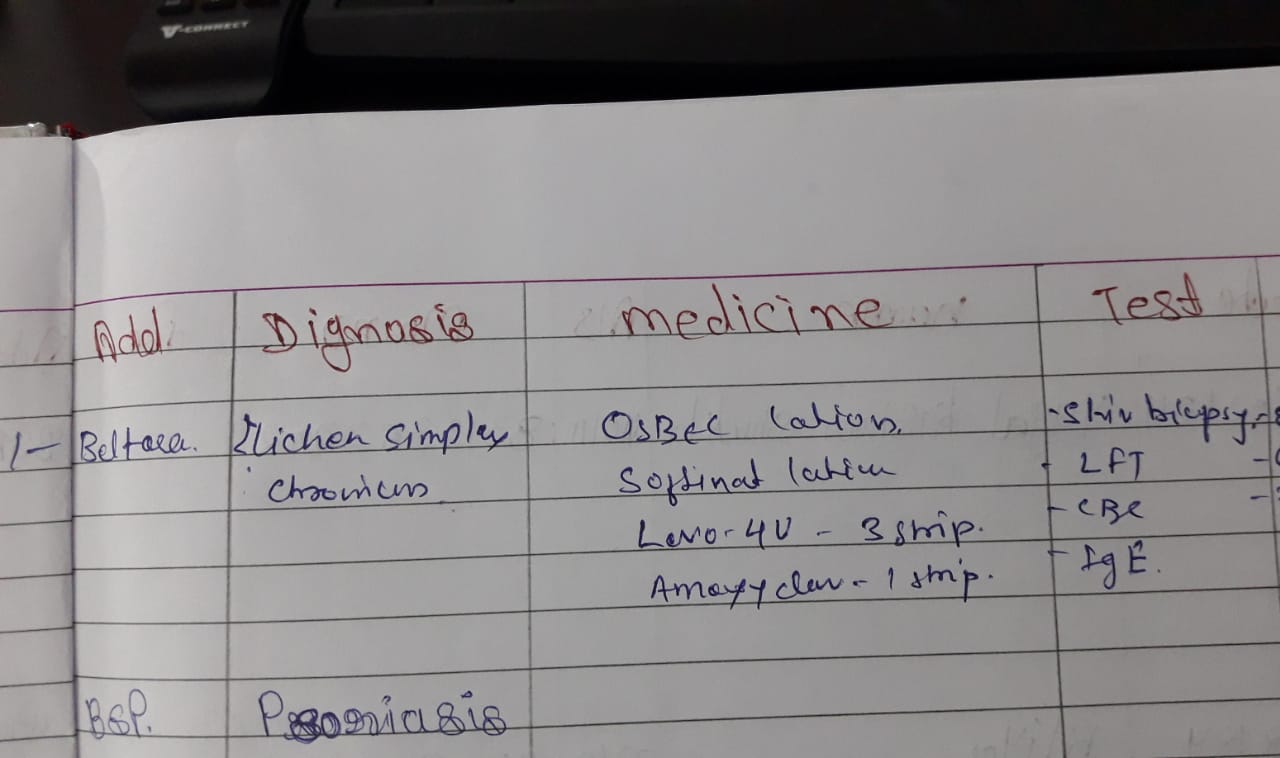 V-CONNECT
Add. Dignosis medicine Test
1- Beltara. Lichen Simplex OSBEC lation. - Skin bicupsy.
Chronicus Softinat lation - LFT
Levo-4U - 3 strip. - CBC
Amoxyclav - 1 strip. - IgE.
BSP. Psoriasis